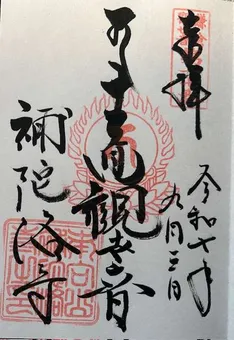 奉拝
令和七年
九月三日
十一面観世音
補陀洛寺